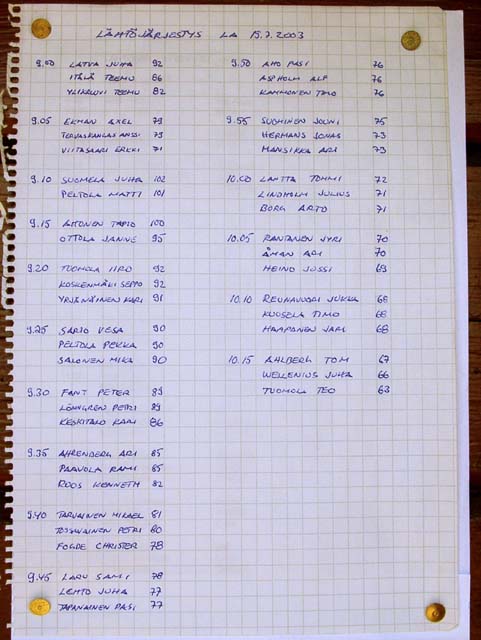 LÄHTÖJÄRJESTYS LA 15.7.2003
9.00 LATVA JUHA 92
ITÄLÄ TEEMU 86
YLIKRUUVI TEEMU 82
9.05 EKMAN AXEL 79
TERVASKANGAS ANSSI 79
VIITASAARI ERKKI 71
9.10 SUOMELA JUHA 102
PELTOLA MATTI 101
9.15 AHONEN TAPIO 100
OTTOLA JANNE 95
9.20 TUOMOLA IIRO 92
KOSKENMÄKI SEPPO 92
YRJÄNÄINEN KARI 91
9.25 SARJO VESA 90
PELTOLA PEKKA 90
SALONEN MIKA 90
9.30 FANT PETER 89
LÖNNGREN PETRI 89
KESKITALO KARI 86
9.35 AHRENBERG ARI 85
PAAVOLA RAMI 85
ROOS KENNETH 82
9.40 TARVAINEN MIKAEL 81
TOSSAVAINEN PETRI 80
FOGDE CHRISTER 78
9.45 LARU SAMI 78
LEHTO JUHA 77
TAPANAINEN PASI 77
9.50 AHO PASI 76
ASPHOLM ALF 76
KAMMONEN TIMO 76
9.55 SUOMINEN JOUNI 75
HERMANS JONAS 73
MANSIKKA ARI 73
10.00 LANTTA TOMMI 72
LINDHOLM JULIUS 71
BORG ARTO 71
10.05 RANTANEN JYRI 70
ÅMAN ARI 70
HEINO JUSSI 69
10.10 REUHAVUORI JUKKA 68
KUUSELA TIMO 68
HAAPONEN JARI 68
10.15 AHLBERG TOM 67
WELLENIUS JUHA 66
TUOMOLA TEO 63